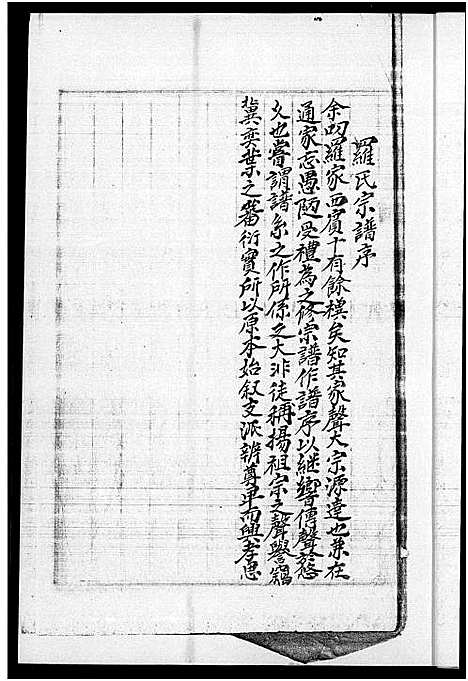 羅氏宗譜序
余叨羅家西賓十有餘襈矣知其家聲大宗源遠也業在
通家忘愚陋受禮為之修宗譜作譜序以继響傳聲於悠
久也嘗謂譜系之作所係之大非徒稱揚祖宗之聲譽竊
冀奕葉之蕃衍實所以原本始叙支派辨尊卑而興孝思